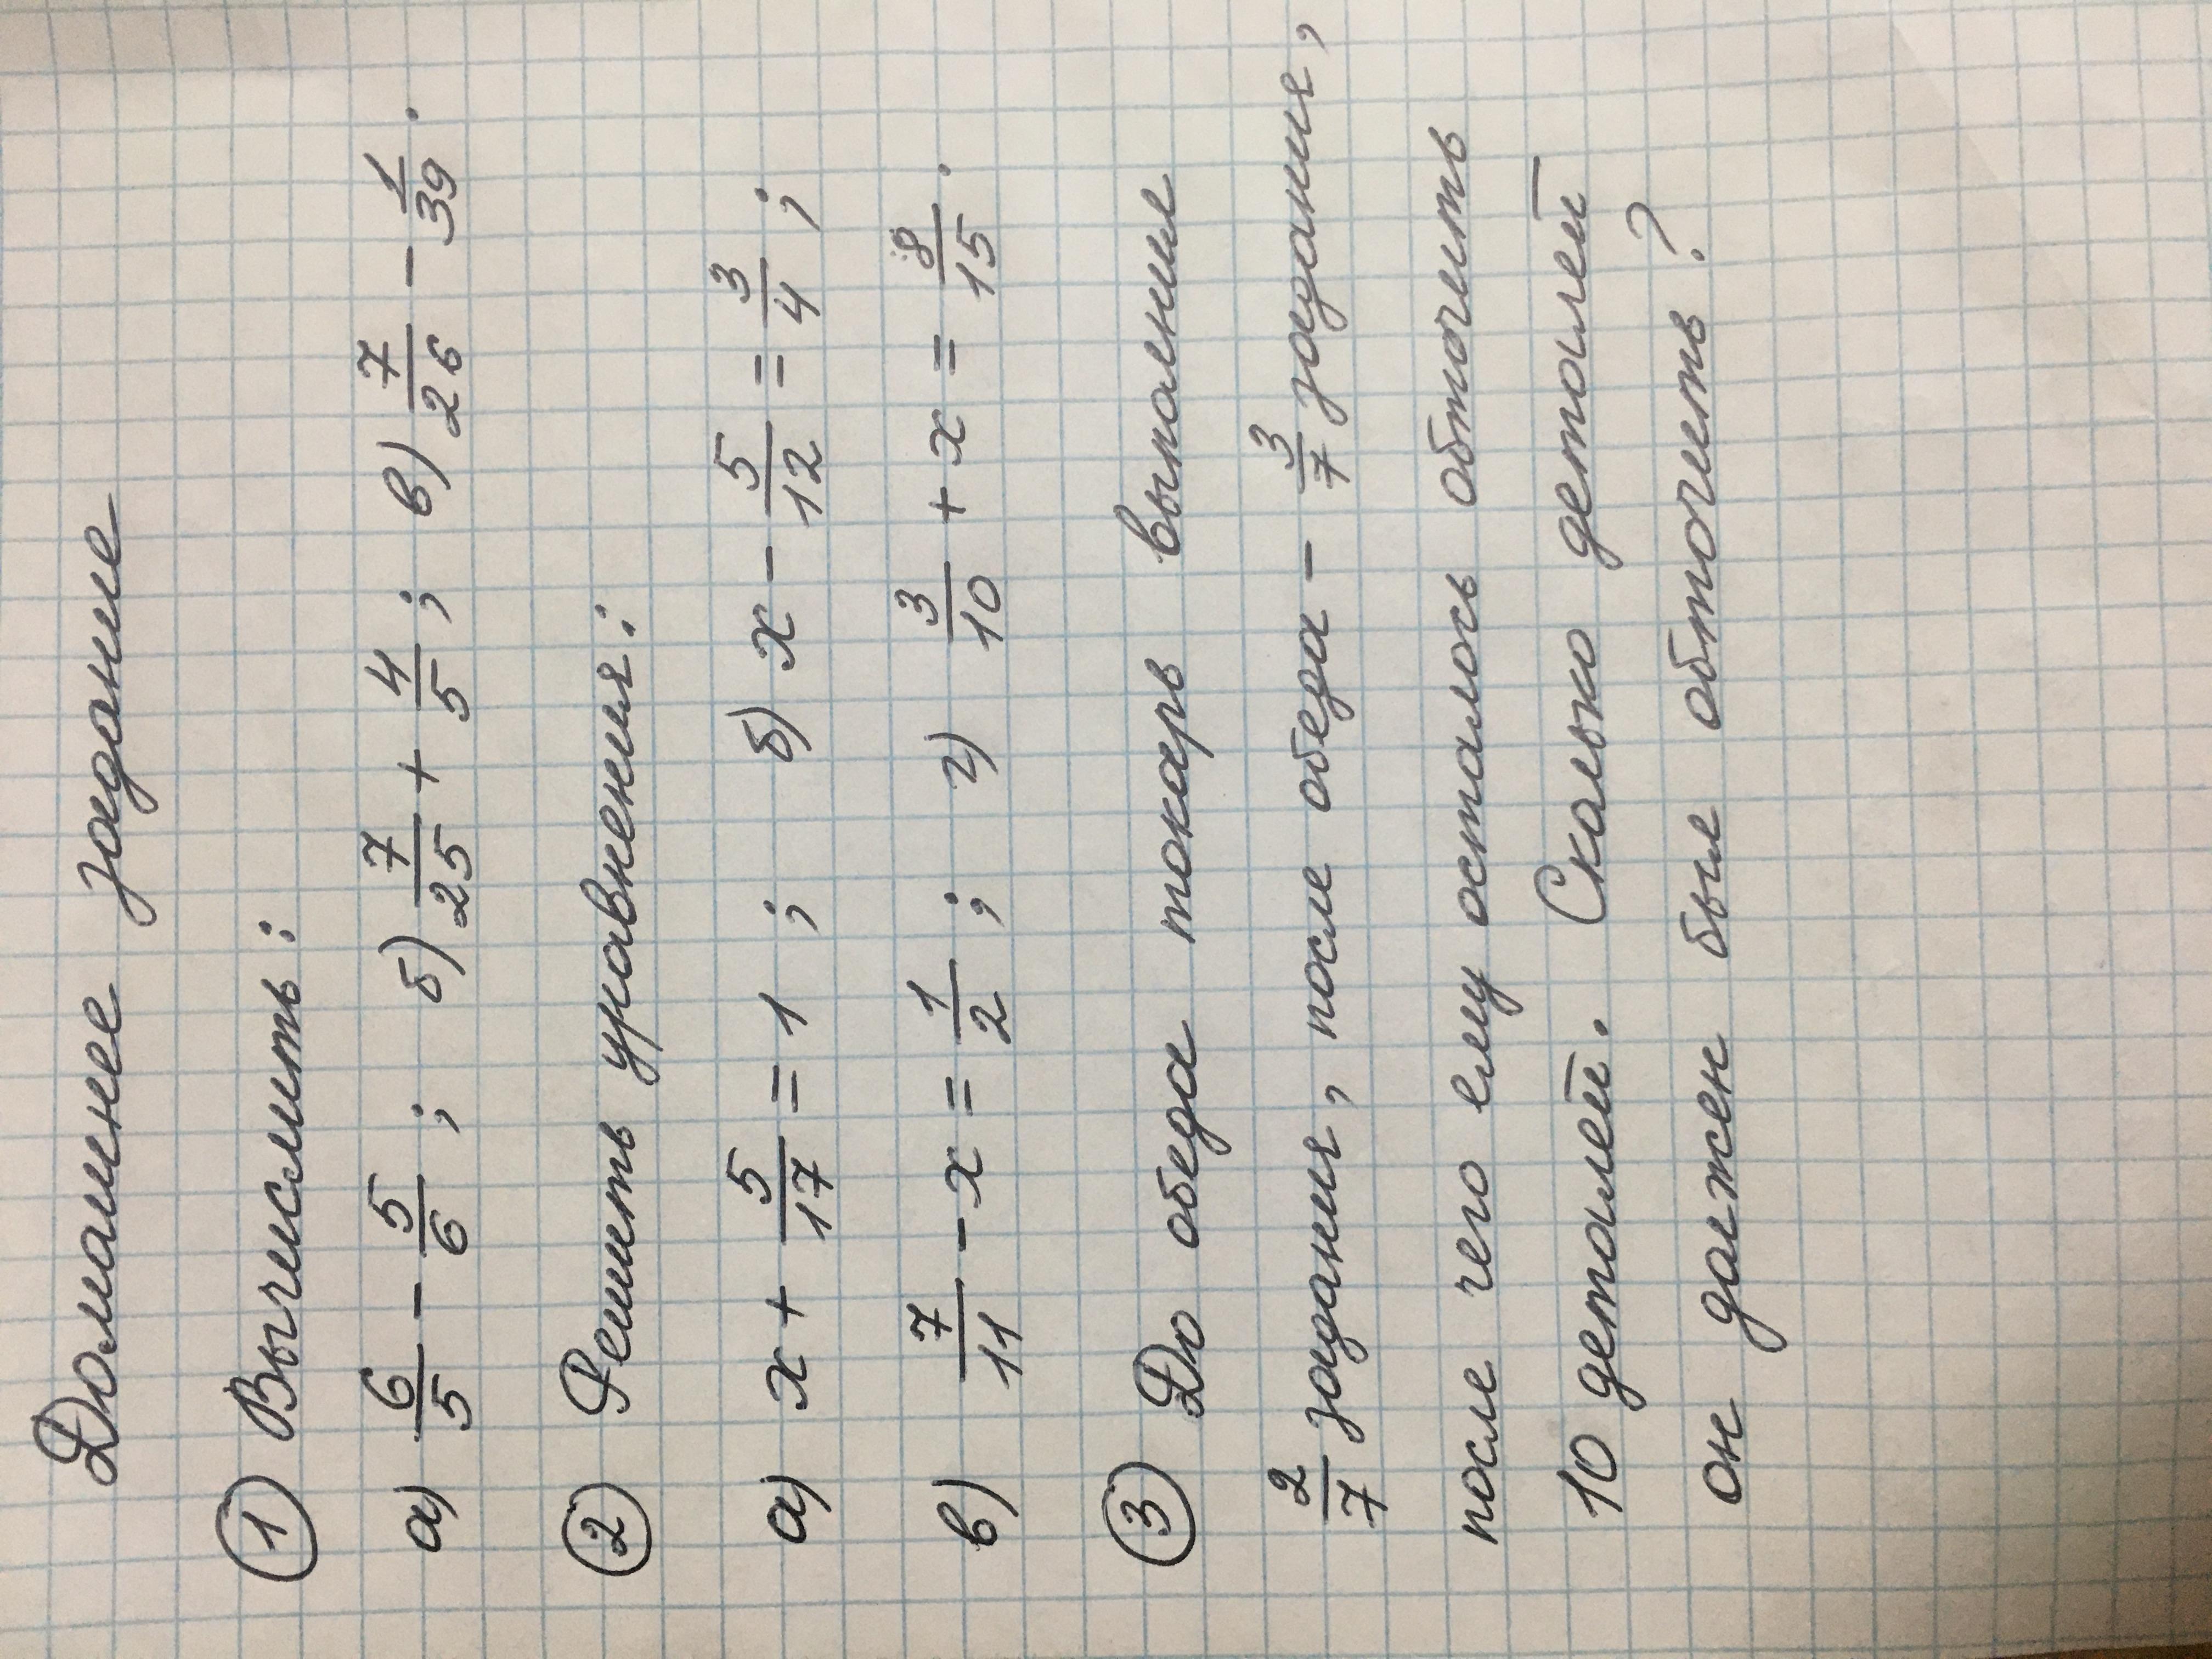 Домашнее задание
① Вычислить:
а) 6/5 - 5/6 ; б) 7/25 + 4/5 ; в) 7/26 - 1/39 .
② Решить уравнения:
а) x + 5/17 = 1 ; б) x - 5/12 = 3/4 ;
в) 7/11 - x = 1/2 ; г) 3/10 + x = 8/15 .
③ До обеда токарь выполнил
2/7 задания, после обеда - 3/7 задание,
после чего ему осталось обточить
10 деталей. Сколько деталей
он должен был обточить?